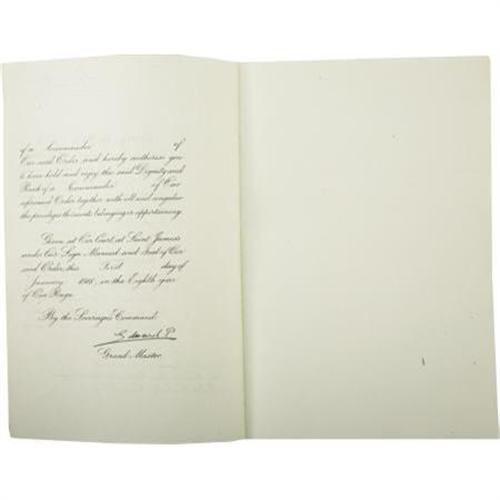 of a Commander of
Our said Order, and hereby authorise you
to have hold and enjoy the said Dignity and
Rank of a Commander of Our
aforesaid Order, together with all and singular
the privileges thereunto belonging or appertaining.
Given at Our Court at Saint James's
under Our Sign Manual and Seal of Our
said Order, this First day of
January 19 in the Eighth year
of Our Reign.
By the Sovereign's Command.
Edward P
Grand Master.